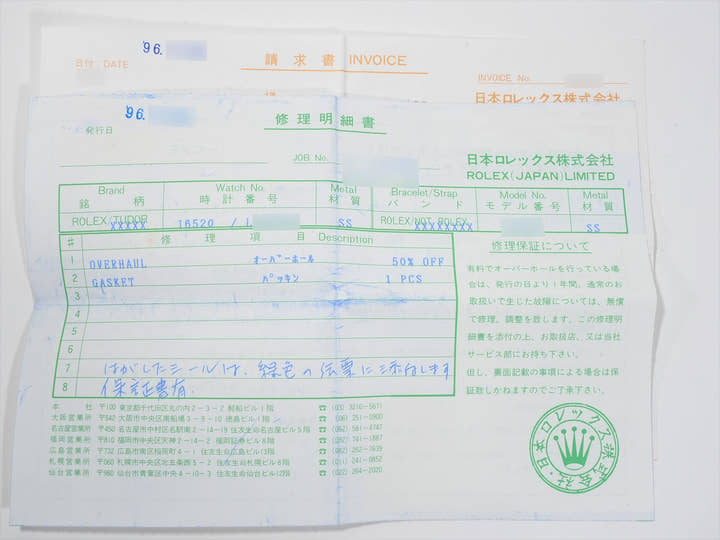 '96.
日付 DATE
請求書 INVOICE
INVOICE No.
日本ロレックス株式会社
'96.
発行日
修理明細書
JOB No.
日本ロレックス株式会社
ROLEX(JAPAN)LIMITED
Brand 銘柄 Watch No. 時計番号 Metal 材質 Bracelet/Strap バンド Model No. モデル番号 Metal 材質
ROLEX/TUDOR XXXXX 16520 / 1 SS ROLEX/NOT ROLEX XXXXXXXX SS
# 修理項目 Description
1 OVERHAUL オーバーホール 50% OFF
2 GASKET パッキン 1 PCS
3
4
5
6
7 はがしたシールは、緑色の伝票に添付します
8 保証書有.
修理保証について
有料でオーバーホールを行っている場
合は、発行の日より1年間、通常のお
取扱いで生じた故障については、無償
で修理、調整を致します。この修理明
細書を添付の上、お取扱店、又は当社
サービス部にお持ち下さい。
但し、裏面記載の事項による場合は保
証致しかねますのでご了承下さい。
本社 〒100 東京都千代田区丸の内2-3-2 郵船ビル1階
大阪営業所 〒542 大阪市中央区南船場3-9-10 徳島ビル1階
名古屋営業所 〒450 名古屋市中村区名駅南2-14-19 住友生命名古屋ビル5階
福岡営業所 〒810 福岡市中央区天神2-14-2 福岡証券ビル8階
広島営業所 〒732 広島市南区稲荷町4-1 住友生命広島ビル13階
札幌営業所 〒060 札幌市中央区北五条西5-2 住友生命札幌ビル8階
仙台営業所 〒980 仙台市青葉区中央4-10-3 住友生命仙台ビル12階
日本ロレックス株式会社